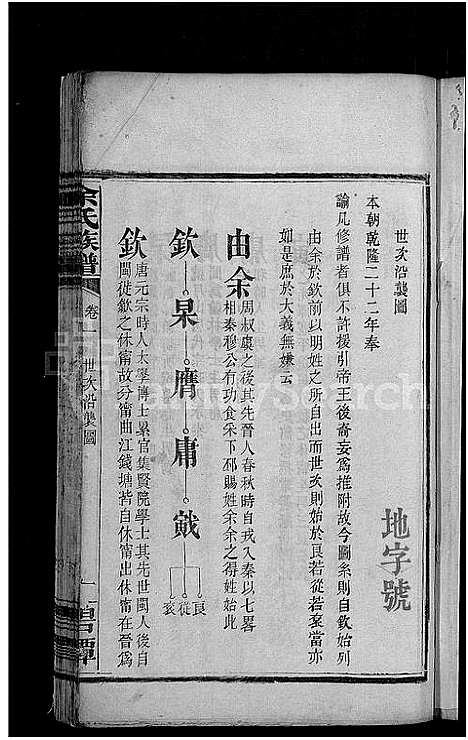 世次沿襲圖
地字號
本朝乾隆二十二年奉
諭凡修譜者俱不許援引帝王後裔妄爲推附故今圖系則自欽始列
由余於欽前以明姓之所自出而世次則始於良若從若袞當亦
如是庶於大義無嫌云
由余周叔虞之後其先晉人春秋時自戎入秦以七畧
相秦穆公有功食采下邳賜姓余余之得姓始此
欽 杲 膺 庸 戭 良 從 袞
欽唐元宗時人太學博士累官集賢院學士其先世閩人後自
閩徙歙之休甯故分甯曲江錢塘皆自休甯出休甯在晉爲
余氏族譜
卷一
世次沿襲圖
一